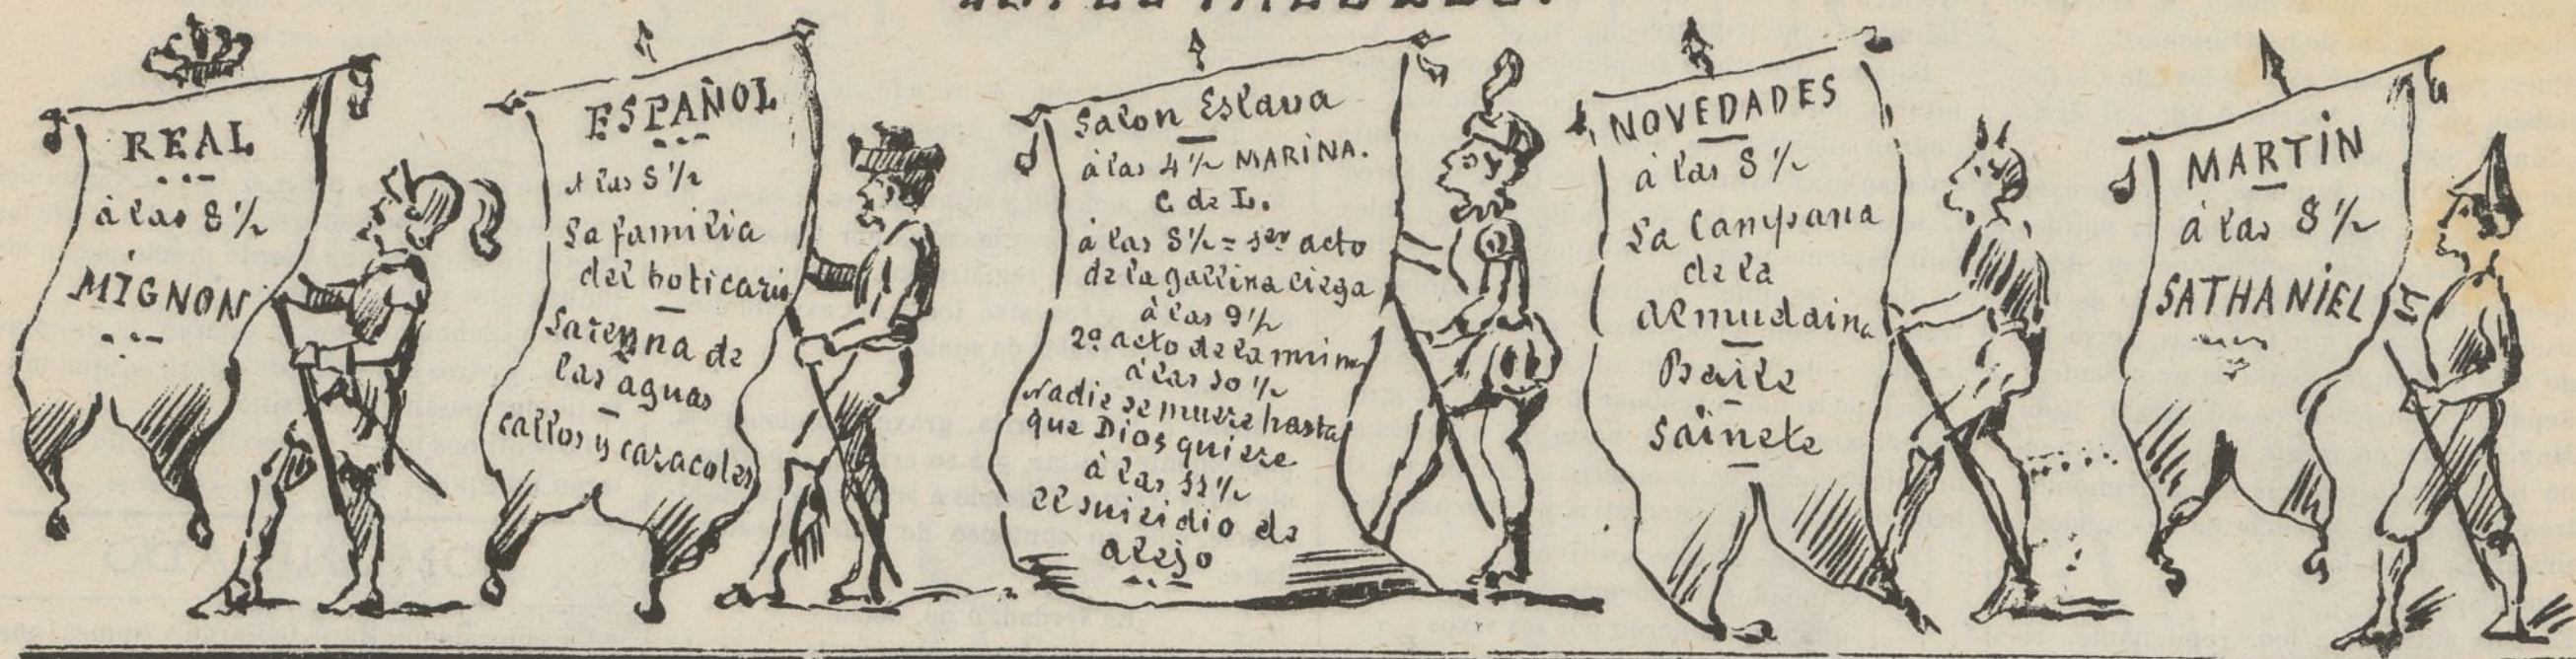 REAL
à las 8 1/2
MIGNON
ESPAÑOL
A las 8 1/2
La familia
del boticario
La reyna de
las aguas
callos y caracoles
Salon Eslava
à las 4 1/2 MARINA.
C. de L.
à las 8 1/2 = 1er acto
de la gallina ciega
à las 9 1/2
2º acto de la misma
à las 10 1/2
Nadie se muere hasta
que Dios quiere
à las 11 1/2
el suicidio de
alejo
NOVEDADES
à las 8 1/2
La Campana
de la
Almudaina
Baile
Sainete
MARTIN
à las 8 1/2
SATHANIEL